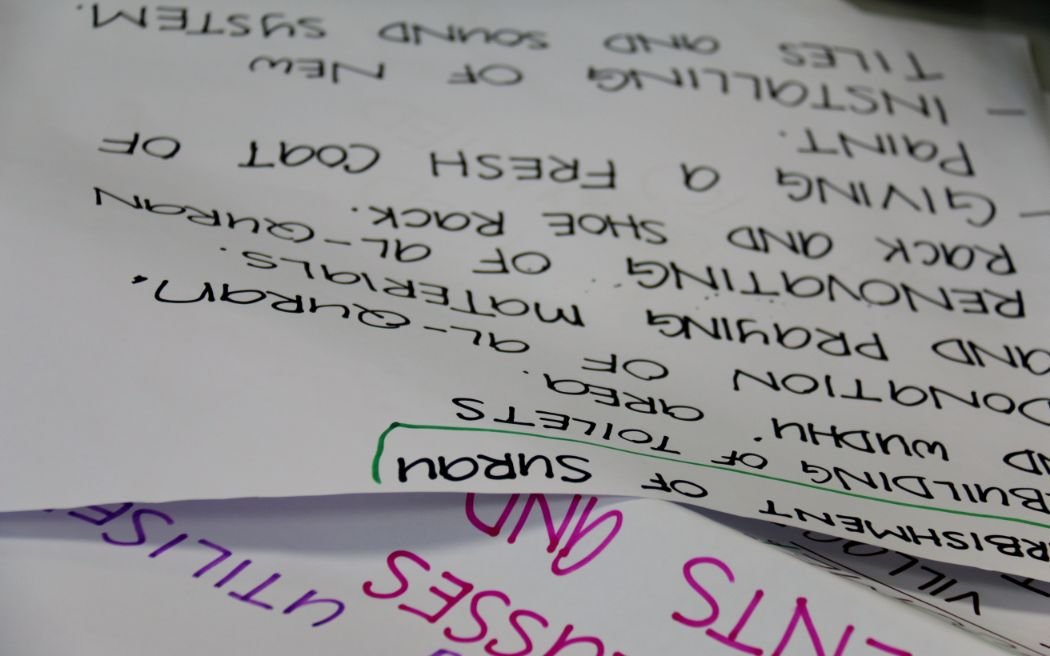 USSES UTILISE
ENTS AND
VILL
RBISHMENT OF SURAU
BUILDING OF TOILETS
ND WUDHU' AREA.
DONATION OF AL-QURAN.
AND PRAYING MATERIALS.
RENOVATING OF AL-QURAN
RACK AND SHOE RACK.
- GIVING A FRESH COAT OF
PAINT.
- INSTALLING OF NEW
TILES AND SOUND SYSTEM.